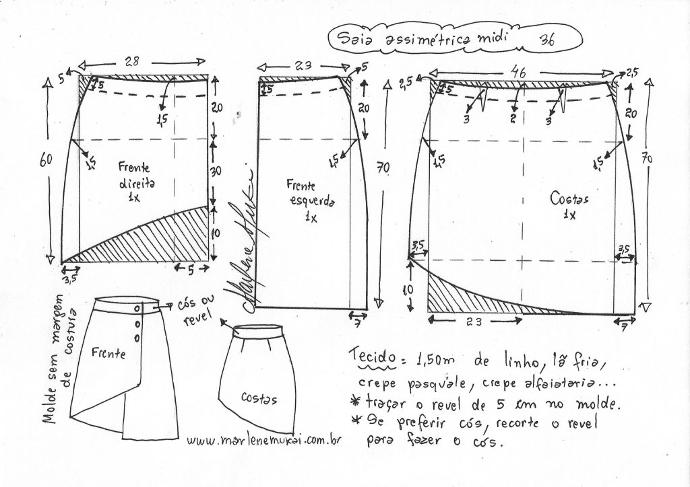 Saia assimétrica midi 36
28
5
5
1,5
20
60
1,5
30
Frente
direita
1x
10
3,5
5
23
5
5
20
1,5
70
Frente
esquerda
1x
7
Marlene Mukai
46
2,5
2,5
3
2
3
20
1,5
1,5
70
Costas
1x
3,5
3,5
10
23
7
Molde sem margem
de costura
cós ou
revel
Frente
Costas
www.marlenemukai.com.br
Tecido = 1,50m de linho, lã fria,
crepe pasquale, crepe alfaiataria...
* traçar o revel de 5 cm no molde.
* Se preferir cós, recorte o revel
para fazer o cós.